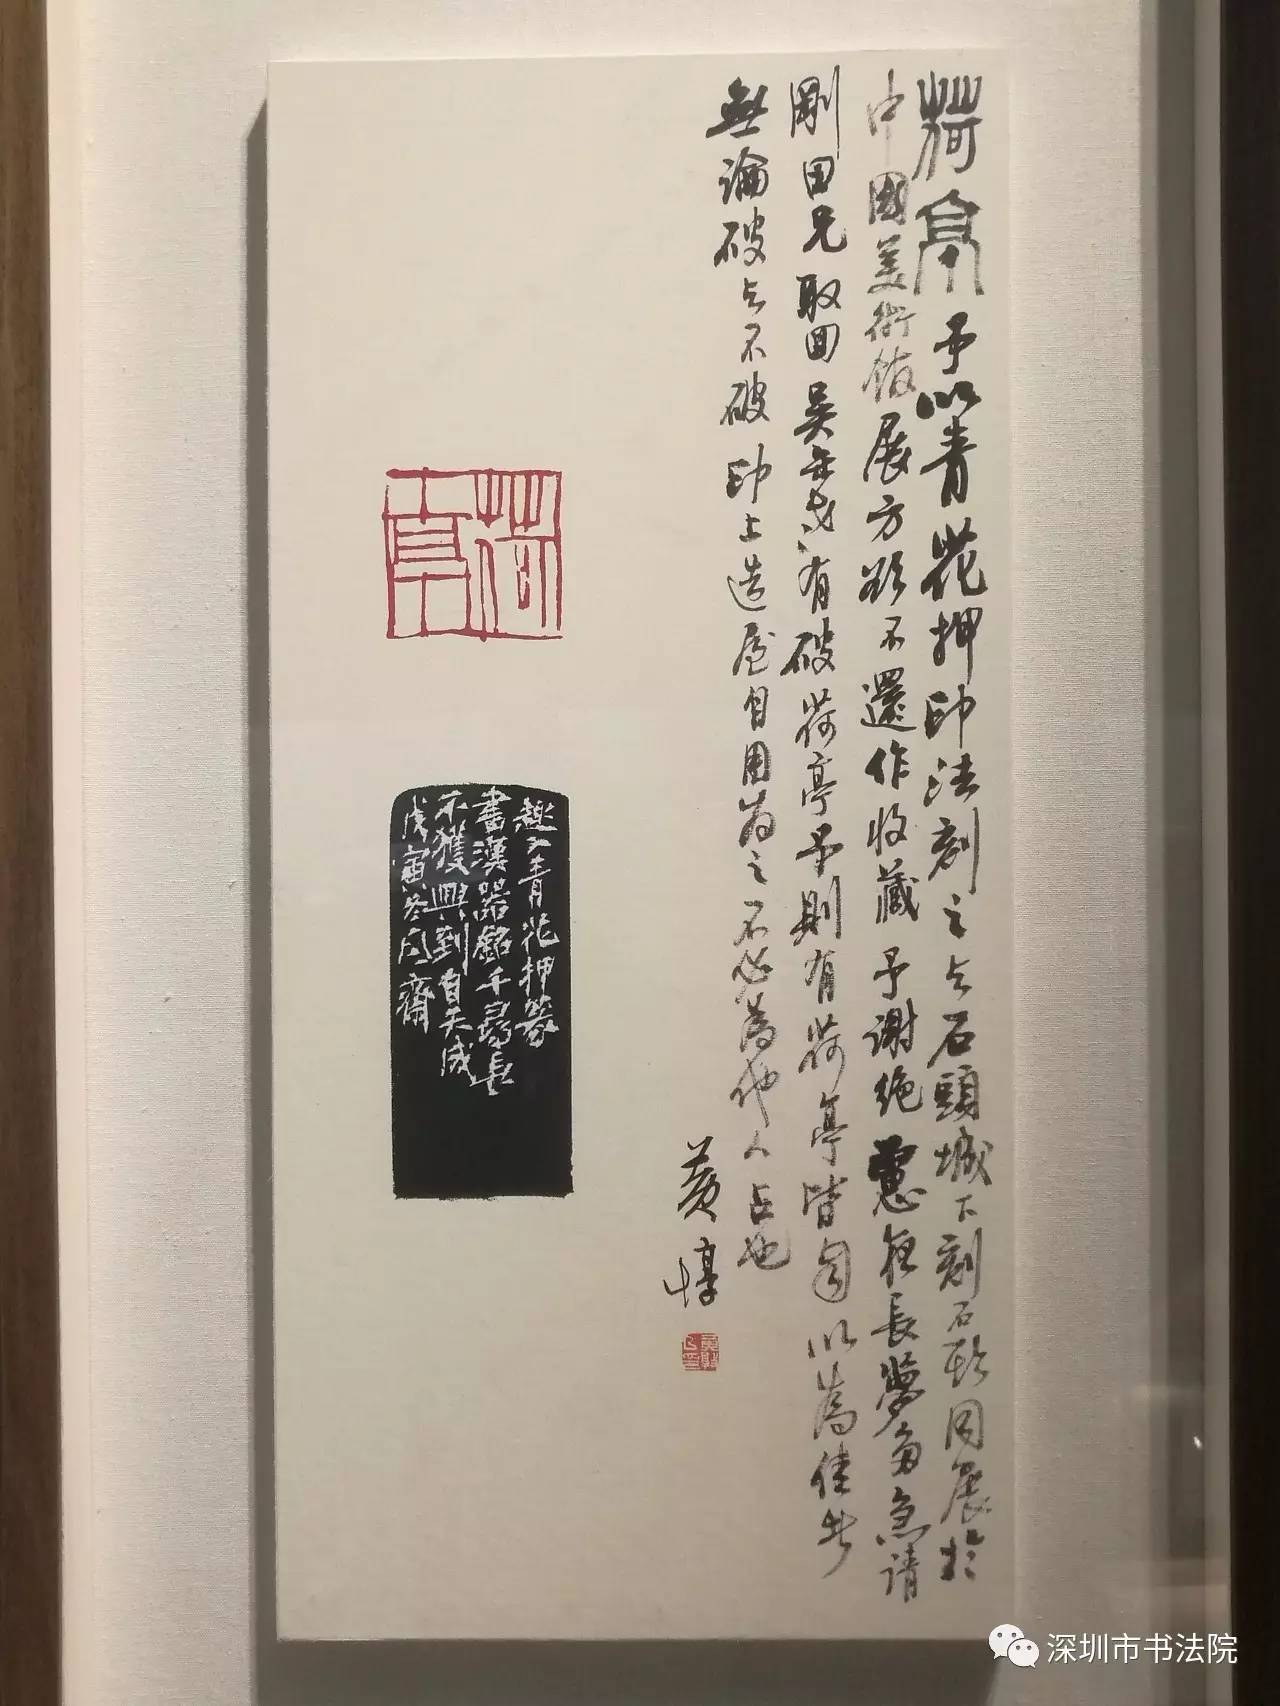 荷亭 予以青花押印法刻之与石頭城下刻石
同展於
中國美術館展方欲不還作收藏予謝絕
夜長夢多急請
剛田兄取回吳 有破荷亭予則有荷亭皆自以為佳
無論破与不破印上造屋自用為之不必為他人占也
黃惇
荷亭
趣在青花押篆
書漢器銘千尋長
不獲興到自天成
戊寅冬風齋
深圳市书法院